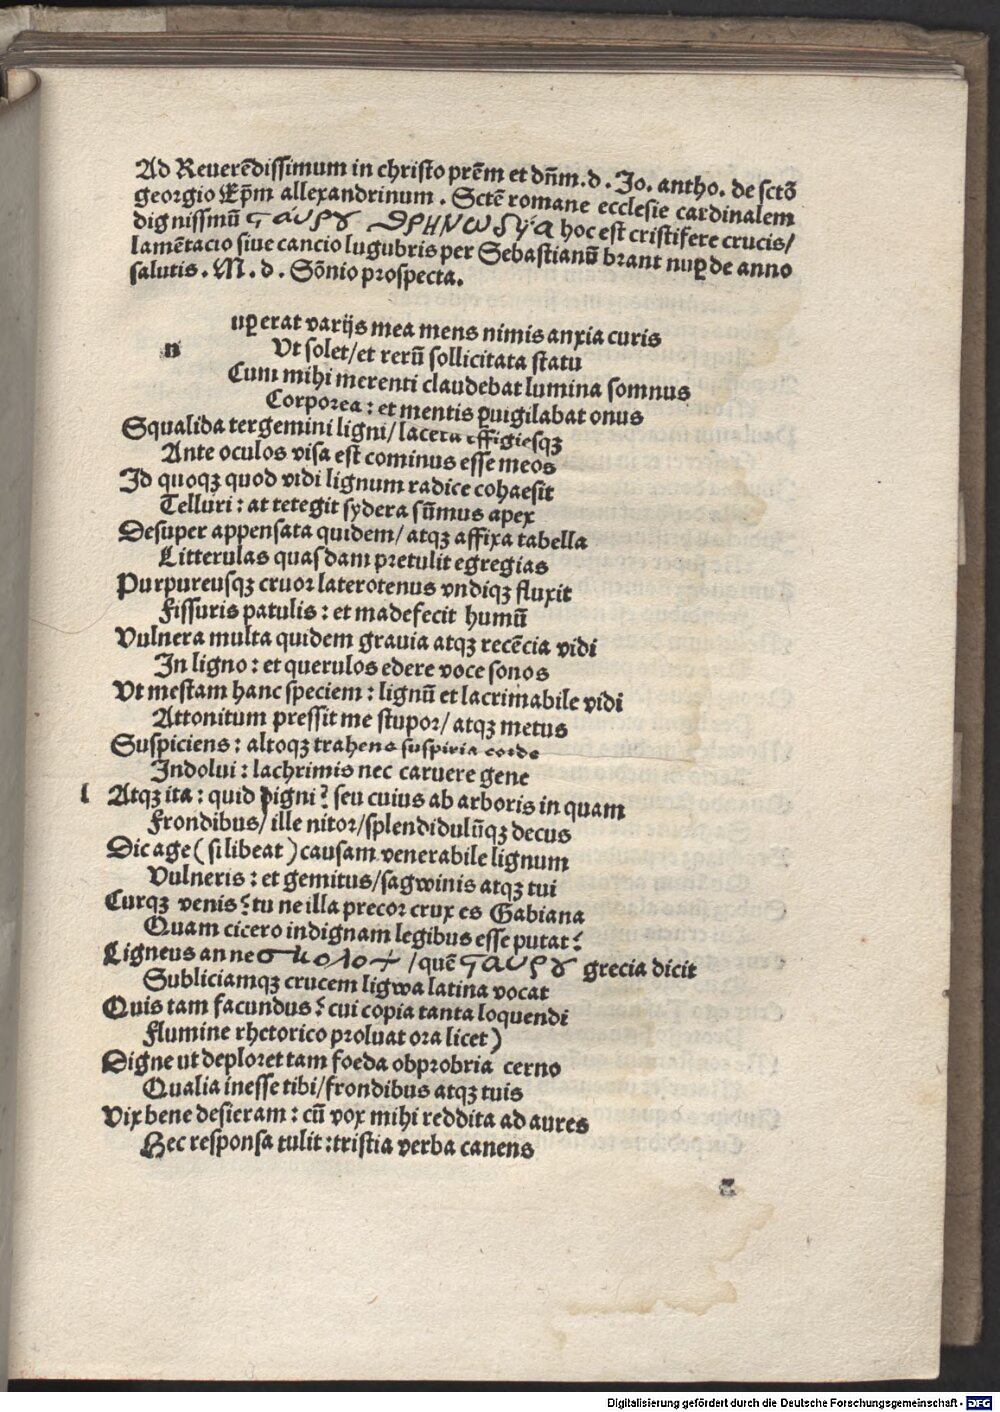 Ad Reuerēdissimum in christo prēm et dn̄m.d. Jo. antho. de sctō
georgio Ep̄m allexandrinum. Sctē romane ecclesie cardinalem
dignissmū ςαυρȣ ϑρηνωδια hoc est cristifere crucis/
lamētacio siue cancio lugubris per Sebastianū brant nuꝑ de anno
salutis. M. d. Sōnio prospecta.
uꝑ erat varijs mea mens nimis anxia curis
n Vt solet/et rerū sollicitata statu
Cum mihi merenti claudebat lumina somnus
Corporea: et mentis ꝑuigilabat onus
Squalida tergemini ligni/lacera effigiesqꝫ
Ante oculos visa est cominus esse meos
Id quoqꝫ quod vidi lignum radice cohaesit
Telluri: at tetegit sydera sūmus apex
Desuper appensata quidem/atqꝫ affixa tabella
Litterulas quasdam pretulit egregias
Purpureusqꝫ cruor laterotenus vndiqꝫ fluxit
Fissuris patulis: et madefecit humū
Vulnera multa quidem grauia atqꝫ recēcia vidi
In ligno: et querulos edere voce sonos
Vt mestam hanc speciem: lignū et lacrimabile vidi
Attonitum pressit me stupor/atqꝫ metus
Suspiciens: altoqꝫ trahens suspiria corde
Indolui: lachrimis nec caruere gene
l Atqꝫ ita: quid pigni? seu cuius ab arboris in quam
Frondibus/ille nitor/splendidulūqꝫ decus
Dic age (si libeat) causam venerabile lignum
Vulneris: et gemitus/sagwinis atqꝫ tui
Curqꝫ venis? tu ne illa precor crux es Gabiana
Quam cicero indignam legibus esse putat?
Ligneus an ne σκολοψ/quē ςαυρȣ grecia dicit
Subliciamqꝫ crucem ligwa latina vocat
Quis tam facundus? cui copia tanta loquendi
Flumine rhetorico proluat ora licet)
Digne vt deploret tam foeda obprobria cerno
Qualia inesse tibi/frondibus atqꝫ tuis
Vix bene desieram: cū vox mihi reddita ad aures
Hec responsa tulit: tristia verba canens
Digitalisierung gefördert durch die Deutsche Forschungsgemeinschaft - DFG